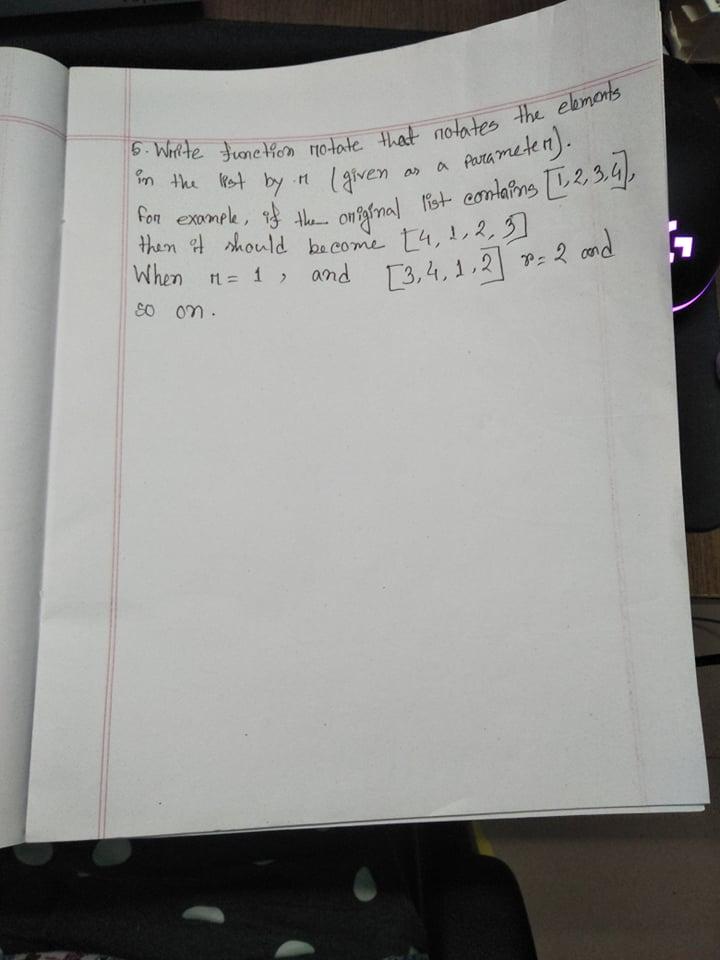 5. Write function rotate that rotates the elements
in the list by r (given as a parameter).
For example, if the original list contains [1,2,3,4],
then it should become [4, 1, 2, 3]
When r = 1, and [3,4,1,2] r = 2 and
so on.